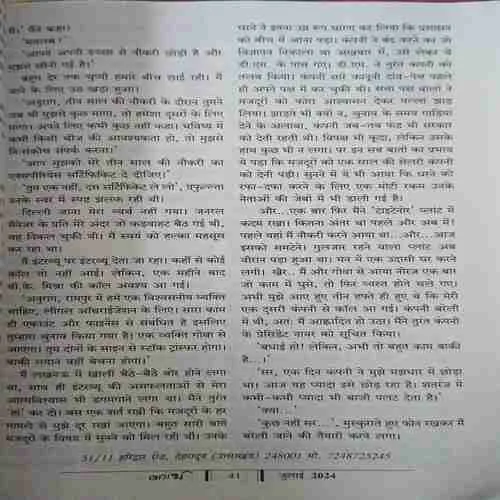 है।' मैंने कहा।
'मतलब।'
'आपने अपनी इच्छा से नौकरी छोड़ी है और
बहुत देर तक चुप्पी हमारे बीच छाई रही। मैं
जाने के लिए उठ खड़ा हुआ।
'अनुराग, तीन साल की नौकरी के दौरान तुमने
जब भी मुझसे कुछ मांगा, तो हमेशा दूसरों के लिए
मांगा। अपने लिए कभी कुछ नहीं कहा। भविष्य में
कभी किसी चीज की आवश्यकता हो, तो मुझसे
निःसंकोच संपर्क करना।'
'आप मुझको मेरे तीन साल की नौकरी का
एक्सपीरियंस सर्टिफिकेट दे दीजिए।'
'तुम एक नहीं, दस सर्टिफिकेट ले लो', प्रफुल्लता
उनके स्वर में स्पष्ट झलक रही थी।
दिल्ली जाना मेरा व्यर्थ नहीं गया। जनरल
मैनेजर के प्रति मेरे अंदर जो कड़वाहट बैठ गई थी,
वह निकल चुकी थी। मैं स्वयं को हल्का महसूस
कर रहा था।
मैं इंटरव्यू पर इंटरव्यू देता जा रहा। कहीं से कोई
कॉल तो नहीं आई। लेकिन, एक महीने बाद
श्री के. मिश्रा की कॉल अवश्य आ गई।
'अनुराग, रामपुर में हमें एक विश्वसनीय व्यक्ति
चाहिए, लीगल ऑथराईजेशन के लिए। सारा काम
ही एकाउंट और फाइनेंस से संबंधित है इसलिए
तुम्हारा चुनाव किया गया है। एक व्यक्ति गोवा से
आएगा। तुम दोनों के साइन से स्टॉक ट्रांसफर होगा।
बाकी सामान वहीं बेचना होगा।'
मैं लखनऊ में खाली बैठे-बैठे बोर होने लगा
था, साथ ही इंटरव्यू की असफलताओं से मेरा
आत्मविश्वास भी डगमगाने लगा था। मैंने तुरंत
'हां' कर दी। बस एक शर्त रखी कि मजदूरों के हर
मामले से मुझे दूर रखा जाएगा। बहुत सारी बातें
मजदूरों के विषय में सुनने को मिल रही थीं। उनके
धरने ने इतना उग्र रूप धारण कर लिया कि प्रशासन
को बीच में आना पड़ा। कंपनी ने बंद करने का जो
विज्ञापन निकाला था अखबार में, उसे लेकर वे
डी.एम. के पास गए। डी.एम. ने तुरंत कंपनी को
तलब किया। कंपनी सारे कानूनी दांव-पेंच पहले
ही अपने पक्ष में कर चुकी थी। सत्ता पक्ष वालों ने
मजदूरों को कोरा आश्वासन देकर पल्ला झाड़
लिया। झाड़ते भी क्यों न, चुनाव के समय गाड़ियां
देने के अलावा, कंपनी जब-तब फंड भी सरकार
को देती रहती थी। विपक्ष भी कूदा, लेकिन उसके
हाथ कुछ भी न लगा। पर इन सब बातों का प्रभाव
ये पड़ा कि मजदूरों को एक साल की सेलरी कंपनी
को देनी पड़ी। सुनने में ये भी आया कि धरने को
रफा-दफा करने के लिए एक मोटी रकम उनके
नेताओं की जेबों में भी डाली गई है।
और...एक बार फिर मैंने 'टाइटेनोर' प्लांट में
कदम रखा। कितना अंतर था पहले और अब में!
पहले यहां मैं नौकरी करने आया था...और...आज
इसको समेटने। गुलजार रहने वाला प्लांट अब
वीरान पड़ा हुआ था। मन में एक उदासी घर करने
लगी। खैर.. मैं और गोवा से आया नीरज एक बार
जो काम में घुसे, तो फिर व्यस्त होते चले गए।
अभी मुझे आए हुए तीन हफ्ते ही हुए, थे कि मेरी
एक दूसरी कंपनी से कॉल आ गई। कंपनी बरेली
में थी, अतः मैं आह्लादित हो उठा। मैंने तुरंत कंपनी
के प्रेसिडेंट नायर को सूचित किया।
'बधाई हो! लेकिन, अभी तो बहुत काम बाकी
है...।'
'सर, एक दिन कंपनी ने मुझे मझधार में छोड़ा
था। आज यह प्यादा इसे छोड़ रहा है। शतरंज में
कभी-कभी प्यादा भी बाजी पलट देता है।'
'क्या...'
'कुछ नहीं सर...', मुस्कुराते हुए फोन रखकर मैं
बरेली जाने की तैयारी करने लगा।
51/11 हरिद्वार रोड, देहरादून (उत्तराखंड) 248001 मो. 7248725245
41
जुलाई 2024